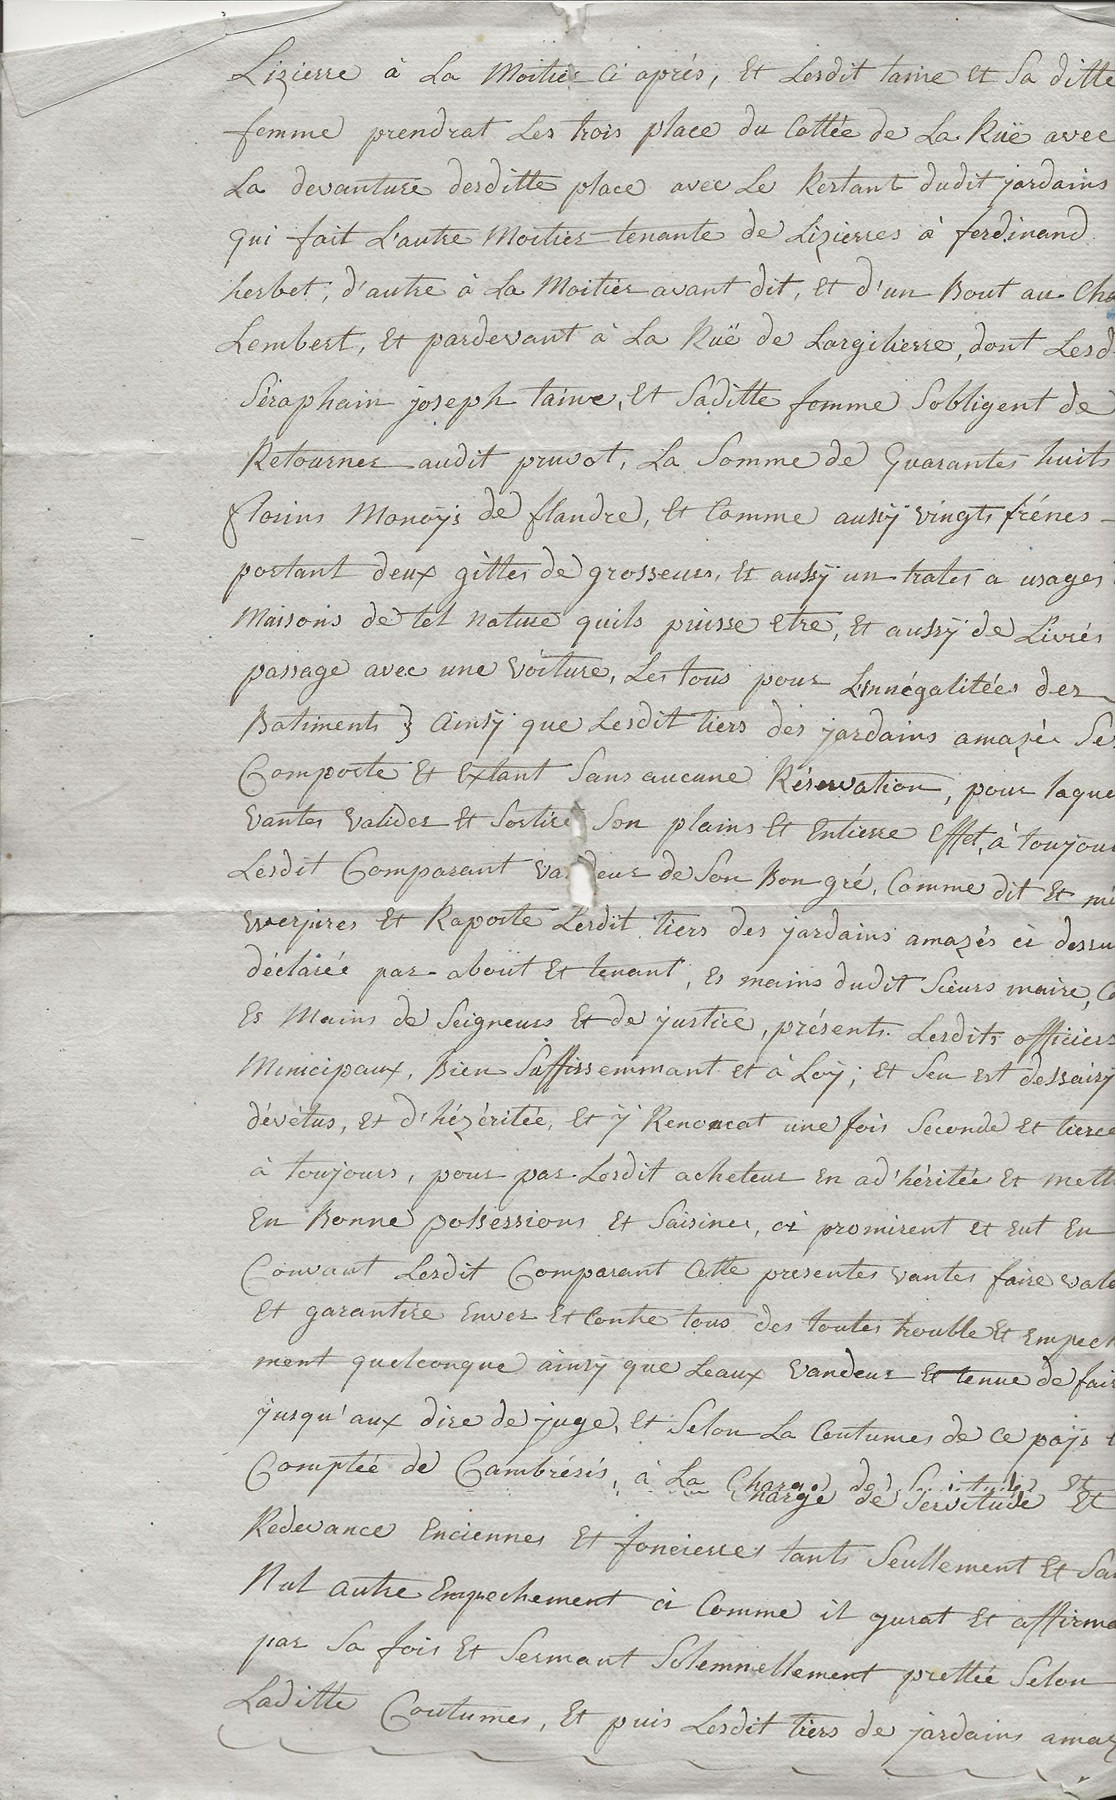 Lizierre à La Moitiér Ci aprés, Et Lesdit taine Et Sa ditte
femme prendrat Les trois place du Cottée de La Ruë avec
La devanture desditte place avec Le Restant dudit jardains
qui fait L'autre Moitier tenante de Lizierres à ferdinand
herbet, d'autre à La Moitiér avant dit, Et d'un Bout au Cha
Lembert, Et pardevant à La Ruë de Largilierre, dont Lesd
Séraphain joseph taine, Et Saditte femme Sobligent de
Retourner audit pruvot, La Somme de Quarantes huits
florins Monoÿs de flandre, Et Comme aussÿ vingts frénes
portant deux gittes de grosseurs, Et aussÿ un trates a usages
Maisons de tel nature quils puisse Etre, Et aussÿ de Livrés
passage avec une voiture, Les tous pour L'innégalitées der
Batiments ainsÿ que Lesdit tiers dés jardains amazés Se
Comporte Et Extant Sans aucune Réservation, pour laque
vantes valider Et Sortire Son plains Et Entierre Effet, à toujour
Lesdit Comparant va deur de Son Bon gré, Comme dit Et
werpires Et Raporte Lesdit tiers des jardains amazés ci dessu
déclarée par about Et tenant, Es mains dudit Sieurs maire, Co
Es Mains de Seigneurs Et de justice, présents Lesdits officiers
Minicipaux, Bien Suffissemmant Et à Loÿ; Et Seu Est dessaisÿ
dévétus, Et d'hézéritée, Et ÿ Renoncat une fois Seconde Et tierce
à toujours, pour par Lesdit acheteur En ad'héritée Et mett
En Bonne possessions Et Saisines, ci promirent Et Eut En
Couvant Lesdit Comparant Cette presentes vantes faire vale
Et garantire Enver Et Contre tous des toutes trouble Et Empech
ment quelconque ainsy que Leaux vandeur Et tenue de fair
jusqu'aux dire de juge, Et Selon La Coutumes de ce paÿs
Comptée de Cambrésis, à La Charge de Servitude Et
Redevance Enciennes Et foncierres tants Seullement Et San
Nul autre Empechement ci Comme il jurat Et affirma
par Sa fois Et Sermant Solemnellement prettée Selon
Laditte Coutumes, Et puis Lesdit tiers de jardains amaz